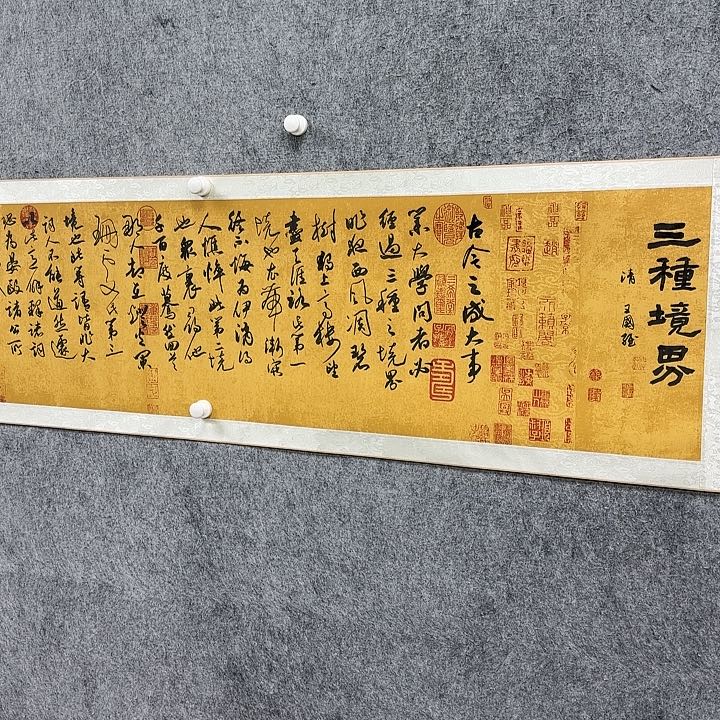 三種境界
清 王國維
古今之成大事
業大學問者必
經過三種之境界
昨夜西風凋碧
樹獨上高樓望
盡天涯路此第一
境也衣帶漸寬
終不悔為伊消得
人憔悴此第二境
也衆裏尋他
千百度驀然回首
那人却在燈火闌
珊處此第三
境也此等語皆非大
詞人不能道然遽
以此意解釋諸詞
恐為晏歐諸公所